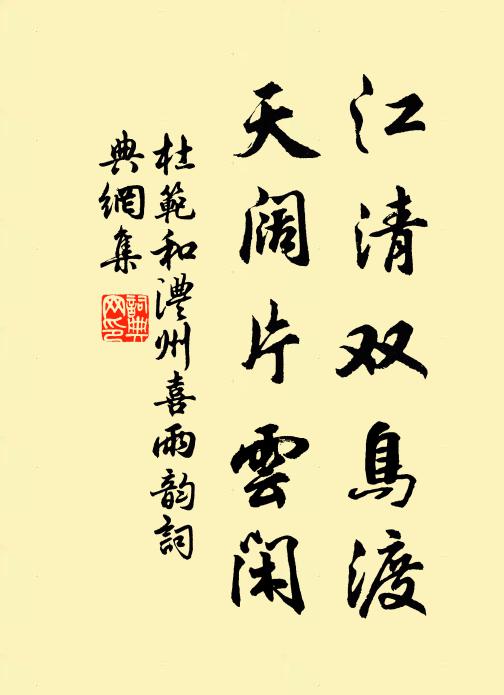 江清双鳥渡
天阔片雲闲
杜範和澧州喜雨韵詞
典網集
詞典网印